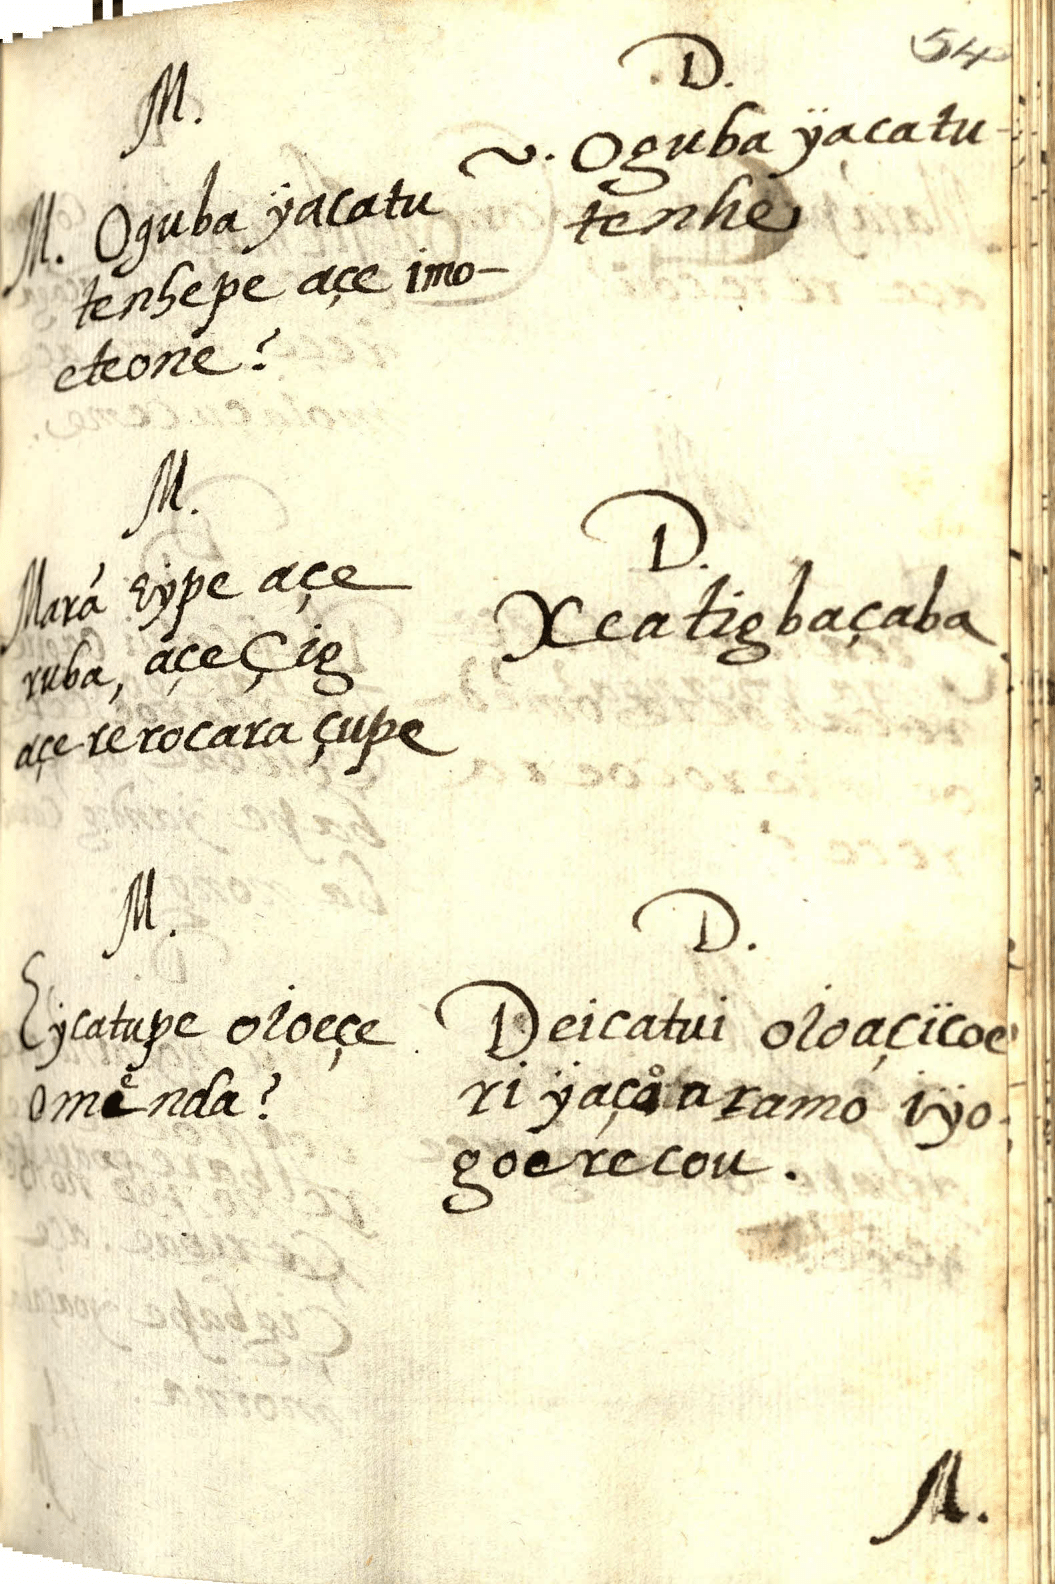 54
M.
M. Oguba ÿacatu
tenhepe açe imo-
eteone?
D.
~. Oguba ÿacatu
tenhe
M.
Mará Eype açe
ruba, açe Çig
açe rerocara çupe
D.
Xeatigbaçaba
M.
Eÿcatupe oioeçe
omenda?
D.
Deicatui oioaçiïcoe
ri ÿaçáaramo iÿo
goerecou.
M.